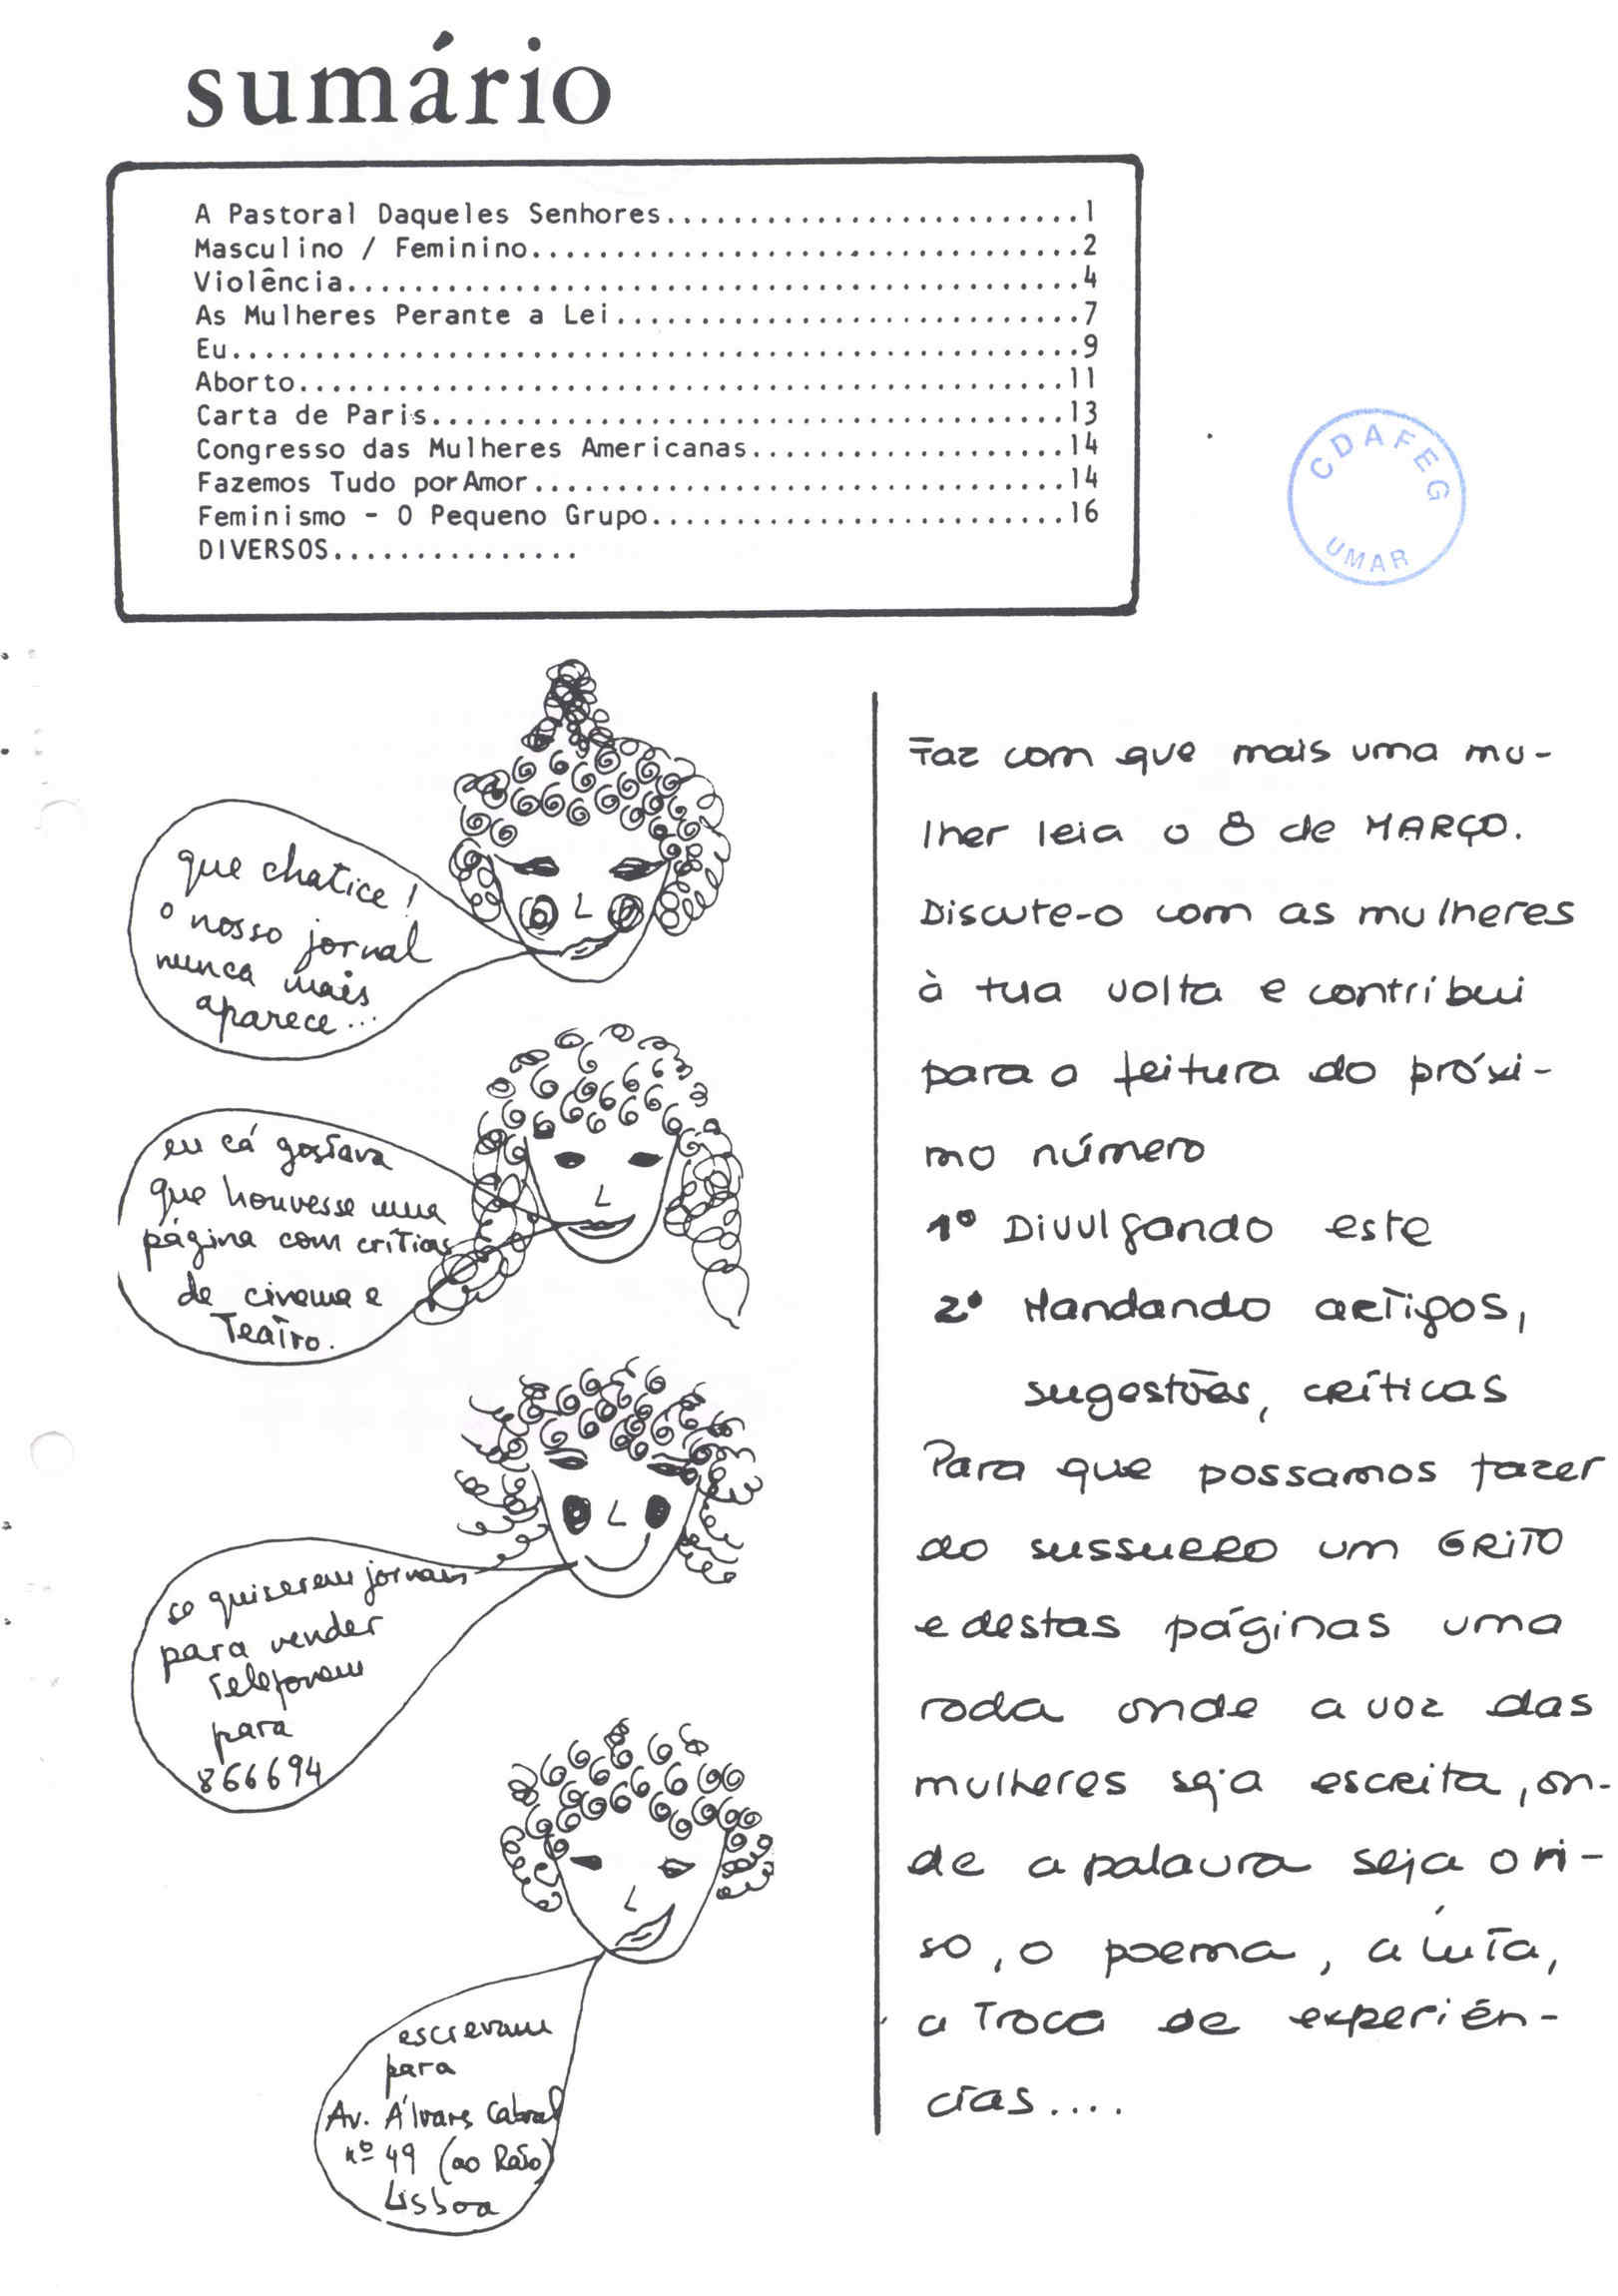 sumário
A Pastoral Daqueles Senhores.........................1
Masculino / Feminino.................................2
Violência............................................4
As Mulheres Perante a Lei............................7
Eu...................................................9
Aborto..............................................11
Carta de Paris......................................13
Congresso das Mulheres Americanas...................14
Fazemos Tudo por Amor................................14
Feminismo - O Pequeno Grupo.........................16
DIVERSOS...............
CDAFEG
UMAR
que chatice!
o nosso jornal
nunca mais
aparece...
eu cá gostava
que houvesse uma
página com críticas
de cinema e
Teatro.
se quiserem jornais
para vender
Telefonem
para
866694
escrevam
para
Av. Álvares Cabral
nº 49 (ao Rato)
Lisboa
Faz com que mais uma mu-
lher leia o 8 de MARÇO.
Discute-o com as mulheres
à tua volta e contribui
para a feitura do próxi-
mo número
1º Divulgando este
2º Mandando artigos,
sugestões, críticas
Para que possamos fazer
do sussurro um GRITO
e destas páginas uma
roda onde a voz das
mulheres seja escrita, on-
de a palavra seja o ri-
so, o poema, a luta,
a Troca de experiên-
cias....